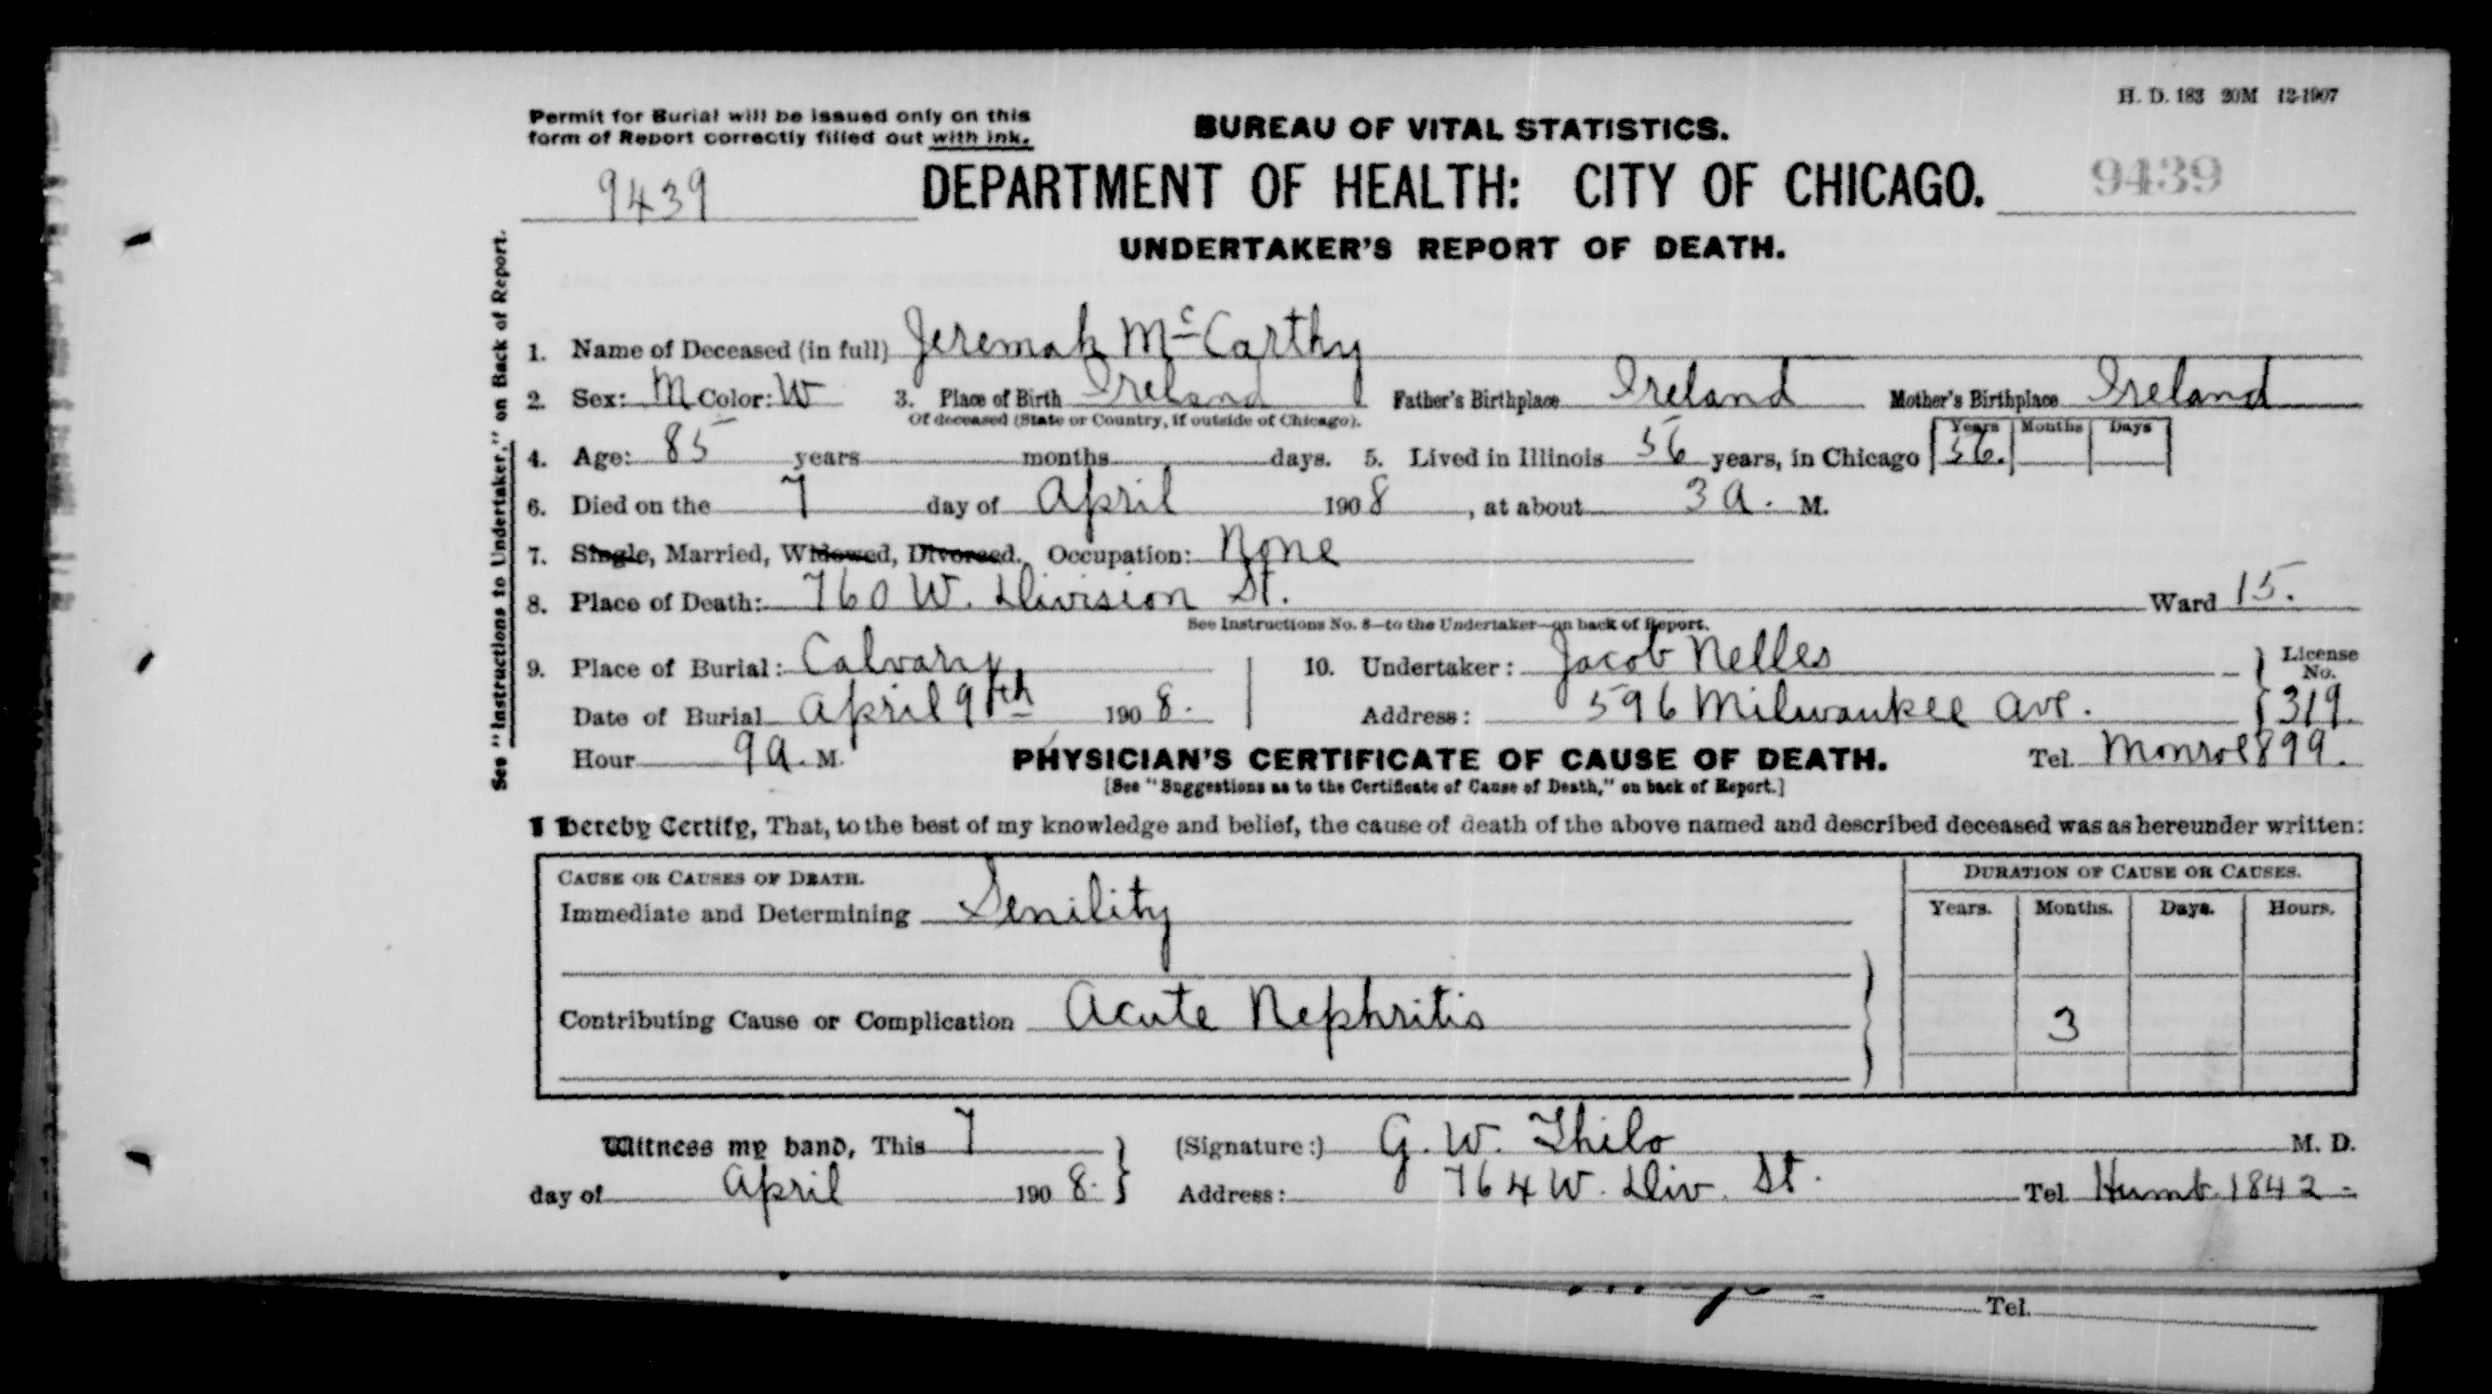 H. D. 183 20M 12-1907
Permit for Burial will be issued only on this
form of Report correctly filled out with ink.
BUREAU OF VITAL STATISTICS.
9439 DEPARTMENT OF HEALTH: CITY OF CHICAGO. 9439
UNDERTAKER'S REPORT OF DEATH.
See "Instructions to Undertaker," on Back of Report.
1. Name of Deceased (in full) Jeremah McCarthy
2. Sex: M Color: W 3. Place of Birth Ireland Father's Birthplace Ireland Mother's Birthplace Ireland
Of deceased (State or Country, if outside of Chicago).
Years Months Days
4. Age: 85 years months days. 5. Lived in Illinois 56 years, in Chicago 56.
6. Died on the 7 day of April 1908, at about 3 a. M.
7. Single, Married, Widowed, Divorced. Occupation: None
8. Place of Death: 760 W. Division St. Ward 15.
See Instructions No. 8—to the Undertaker—on back of Report.
9. Place of Burial: Calvary 10. Undertaker: Jacob Nelles License No.
Date of Burial April 9th 1908. Address: 596 Milwaukee Ave. 319.
Hour 9 a. M. PHYSICIAN'S CERTIFICATE OF CAUSE OF DEATH. Tel. Monroe 899.
[See "Suggestions as to the Certificate of Cause of Death," on back of Report.]
I hereby Certify, That, to the best of my knowledge and belief, the cause of death of the above named and described deceased was as hereunder written:
CAUSE OR CAUSES OF DEATH. DURATION OF CAUSE OR CAUSES.
Immediate and Determining Senility Years. Months. Days. Hours.
Contributing Cause or Complication Acute Nephritis 3
Witness my hand, This 7 (Signature:) G. W. Thilo M. D.
day of April 1908. Address: 764 W. Div. St. Tel. Humb. 1842
Tel.